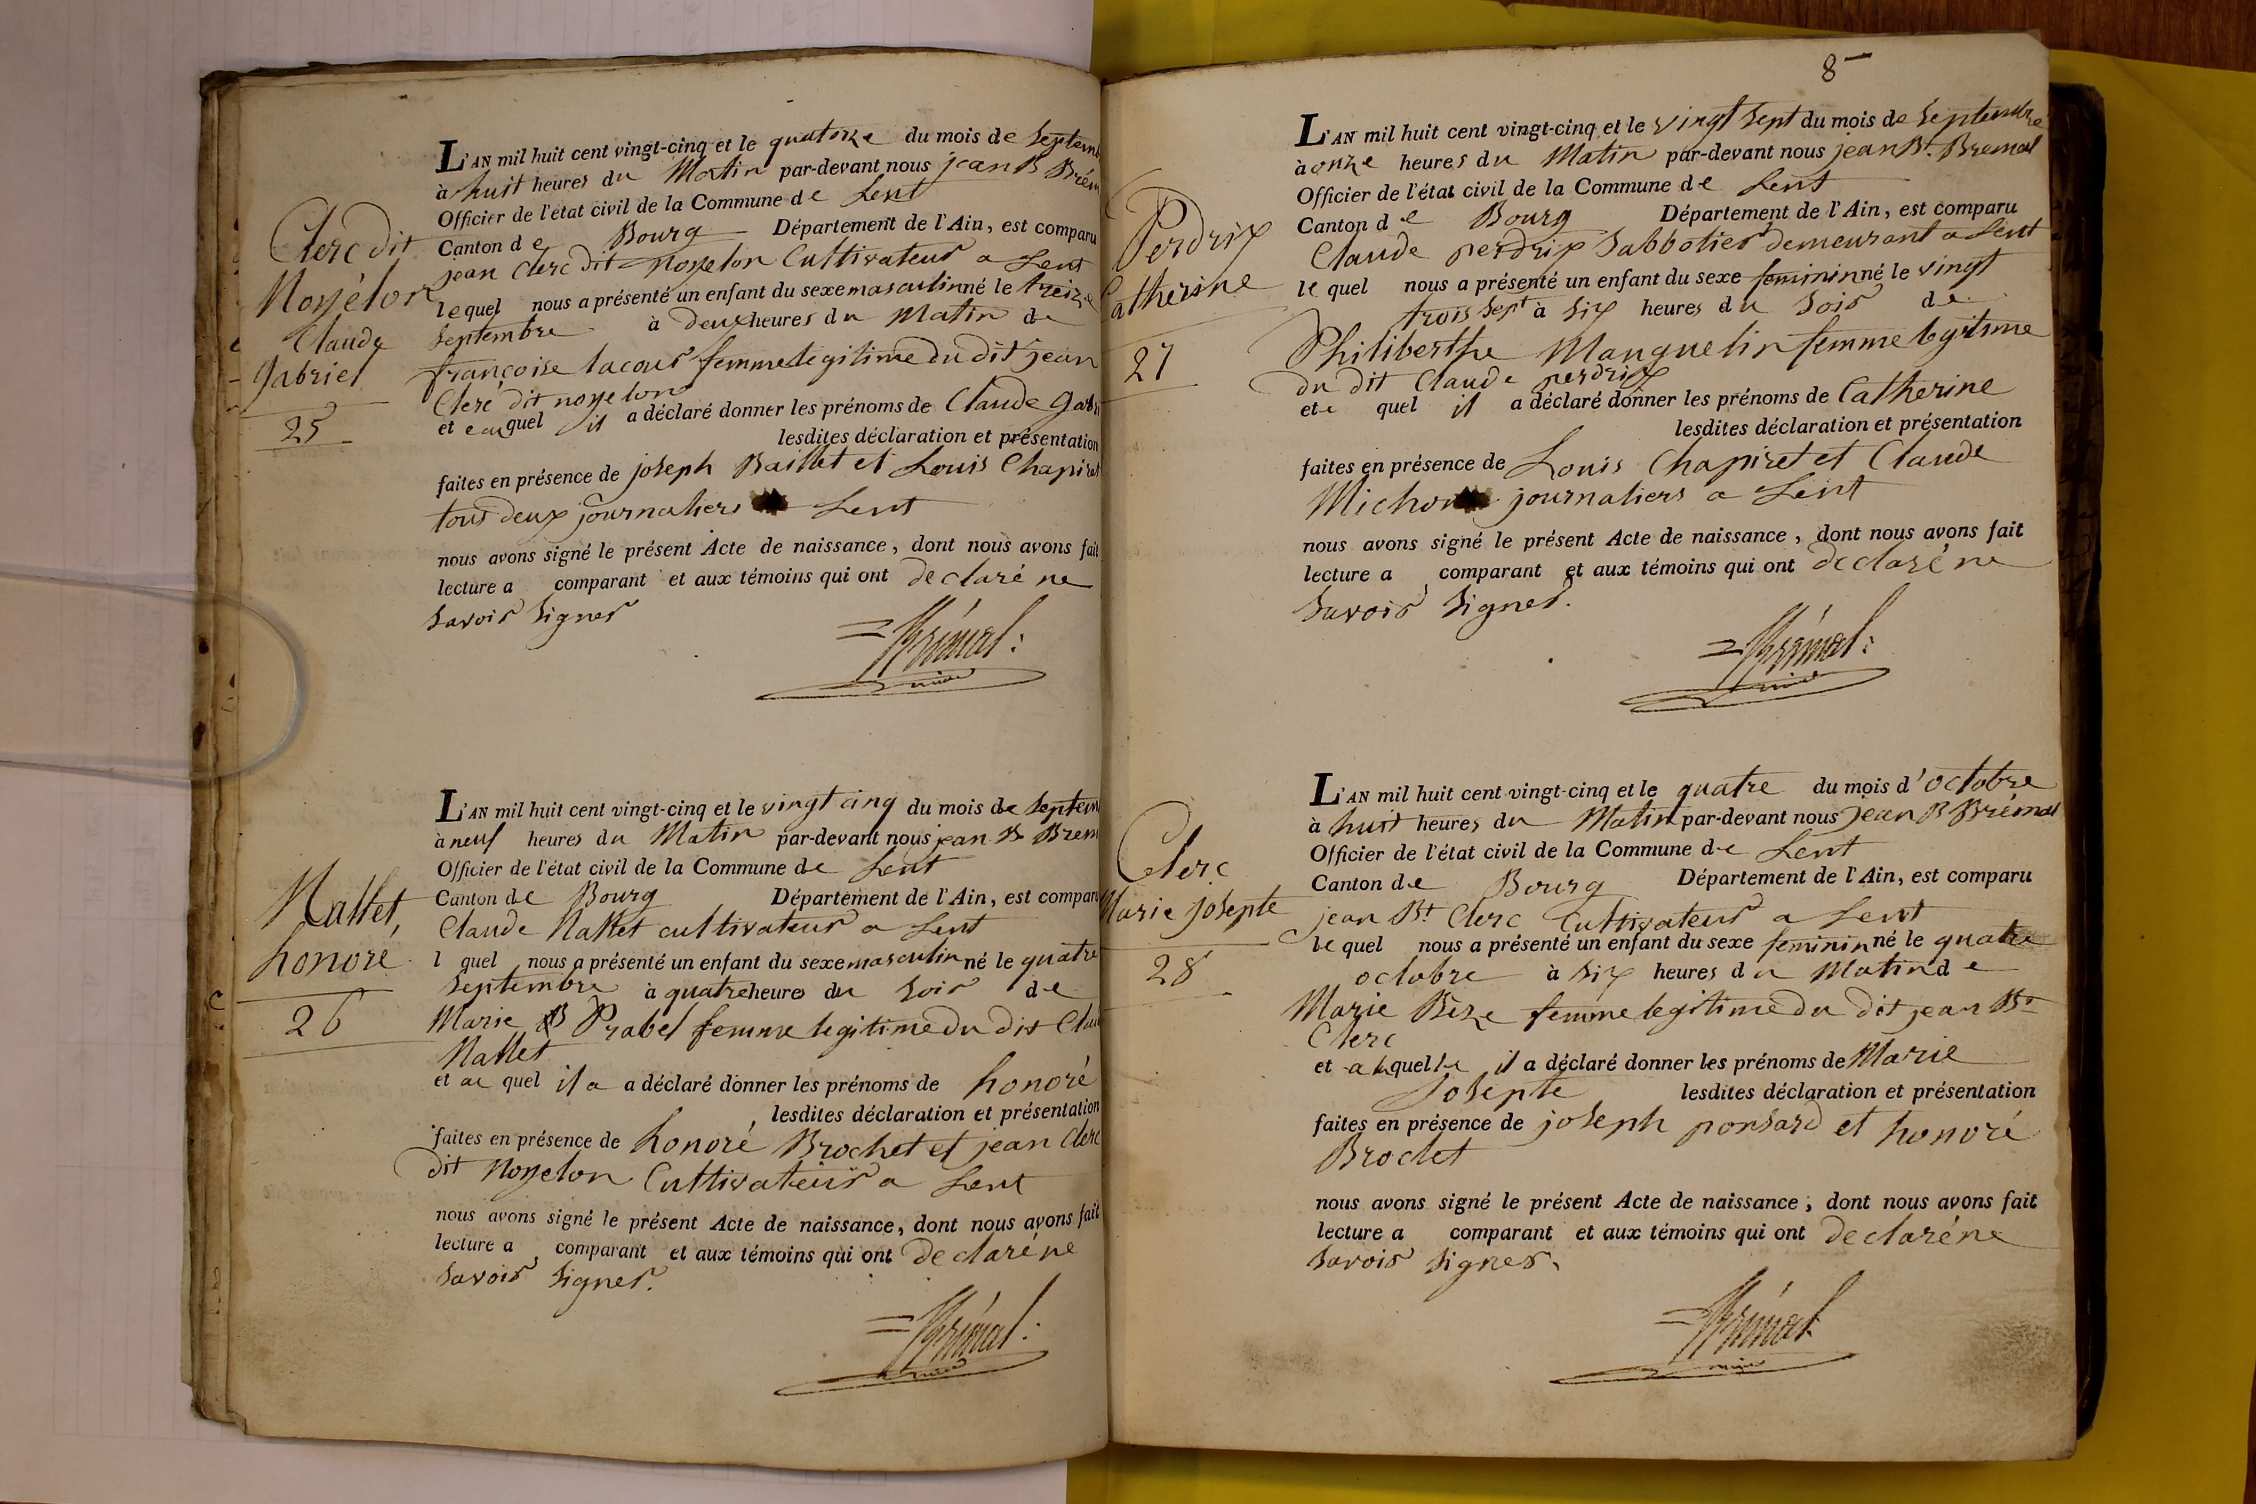 Clerc dit
Noyélon
Claude
gabriel
25
L'AN mil huit cent vingt-cinq et le quatorze du mois de Septem
à huit heures du Matin par-devant nous jean B Brém
Officier de l'état civil de la Commune de Lent
Canton de Bourg Département de l'Ain, est comparu
jean Clerc dit noyelon Cultivateur a Lent
lequel nous a présenté un enfant du sexe masculin né le treize
Septembre à deux heures du Matin de
françoise lacour femme legitime du dit jean
Clerc dit noyelon
et auquel il a déclaré donner les prénoms de Claude gabri
lesdites déclaration et présentation
faites en présence de joseph Baillet et Louis Chapiret
tous deux journaliers Lent
nous avons signé le présent Acte de naissance, dont nous avons fait
lecture a comparant et aux témoins qui ont declaré ne
Savoir Signer
Brémal:
Nallet,
honoré
26
L'AN mil huit cent vingt-cinq et le vingt cinq du mois de Septem
à neuf heures du Matin par-devant nous jean B Brem
Officier de l'état civil de la Commune de Lent
Canton de Bourg Département de l'Ain, est comparu
Claude Nallet cultivateur a Lent
l quel nous a présenté un enfant du sexe masculin né le quatre
Septembre à quatre heures du Soir de
Marie Prabel femme legitime du dit Clau
Nallet
et au quel il a a déclaré donner les prénoms de honoré
lesdites déclaration et présentation
faites en présence de honoré Brochet et jean Clerc
dit Noyelon Cultivateur a Lent
nous avons signé le présent Acte de naissance, dont nous avons fait
lecture a comparant et aux témoins qui ont declaré ne
Savoir Signer.
Brémal:
8
Perdrix
Catherine
27
L'AN mil huit cent vingt-cinq et le vingt Sept du mois de Septembre
à onze heures du Matin par-devant nous jean Bt. Bremal
Officier de l'état civil de la Commune de Lent
Canton de Bourg Département de l'Ain, est comparu
Claude perdrix Sabbotier demeurant a Lent
le quel nous a présenté un enfant du sexe feminin né le vingt
trois Sept à Six heures du Soir de
Philiberthe Manguelin femme legitime
du dit Claude perdrix
et quel il a déclaré donner les prénoms de Catherine
lesdites déclaration et présentation
faites en présence de Louis Chapiret et Claude
Michon journaliers a Lent
nous avons signé le présent Acte de naissance, dont nous avons fait
lecture a comparant et aux témoins qui ont declaré ne
Savoir Signer.
Brémal:
Clerc
Marie josepte
28
L'AN mil huit cent vingt-cinq et le quatre du mois d'octobre
à huit heures du Matin par-devant nous Jean B Brémal
Officier de l'état civil de la Commune de Lent
Canton de Bourg Département de l'Ain, est comparu
jean Bt Clerc Cultivateur a Lent
le quel nous a présenté un enfant du sexe feminin né le quatre
octobre à Six heures du Matin de
Marie Bèze femme legitime du dit jean Bt
Clerc
et a laquelle il a déclaré donner les prénoms de Marie
Josepte lesdites déclaration et présentation
faites en présence de joseph ponsard et honoré
Brochet
nous avons signé le présent Acte de naissance, dont nous avons fait
lecture a comparant et aux témoins qui ont declaré ne
Savoir Signer.
Brémal